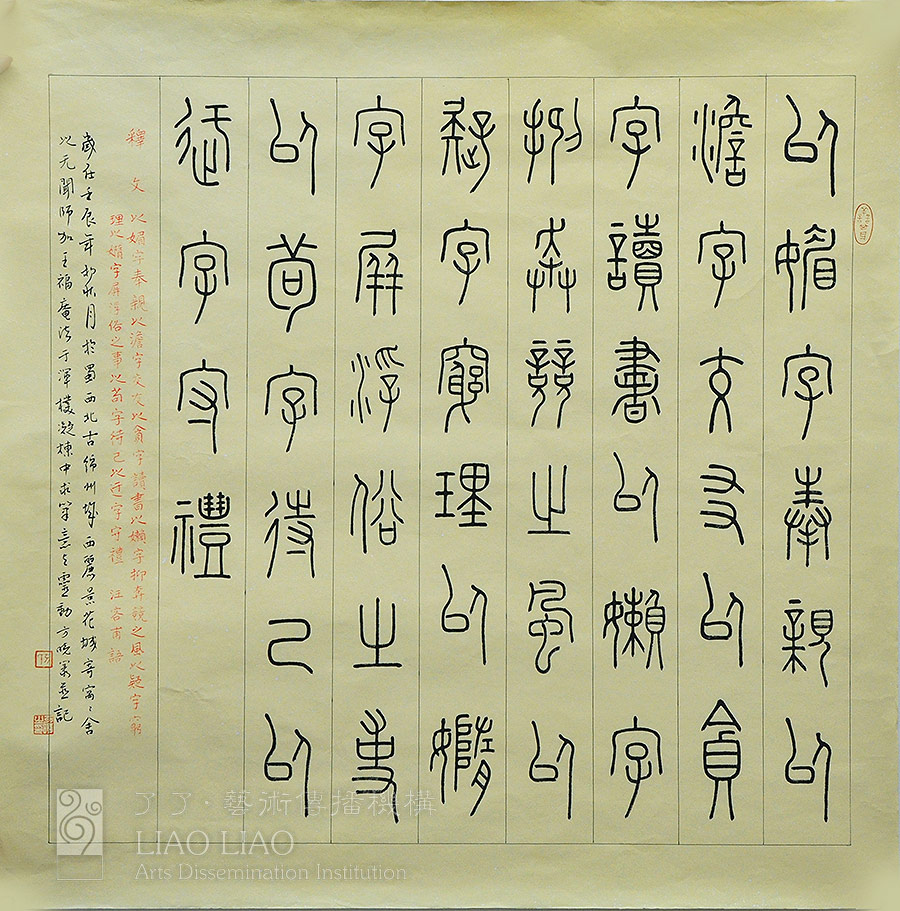 以媚字奉親以
澹字交友以貪
字讀書以嬾字
抑奔競之風以
疑字窮理以媠
字屏浮俗之事
以苟字待己以
迂字守禮
釋文 以媚字奉親以澹字交友以貪字讀書以嬾字抑奔競之風以疑字窮
理以媠字屏浮俗之事以苟字待己以迂字守禮 汪容甫語
歲在壬辰年初秋月於蜀西北古綿州城西麗景花城寄寓之舍
以元聞師加王福庵法于渾樸凝煉中求筆意之靈動方曉並記
了了·藝術傳播機構
LIAO LIAO
Arts Dissemination Institution